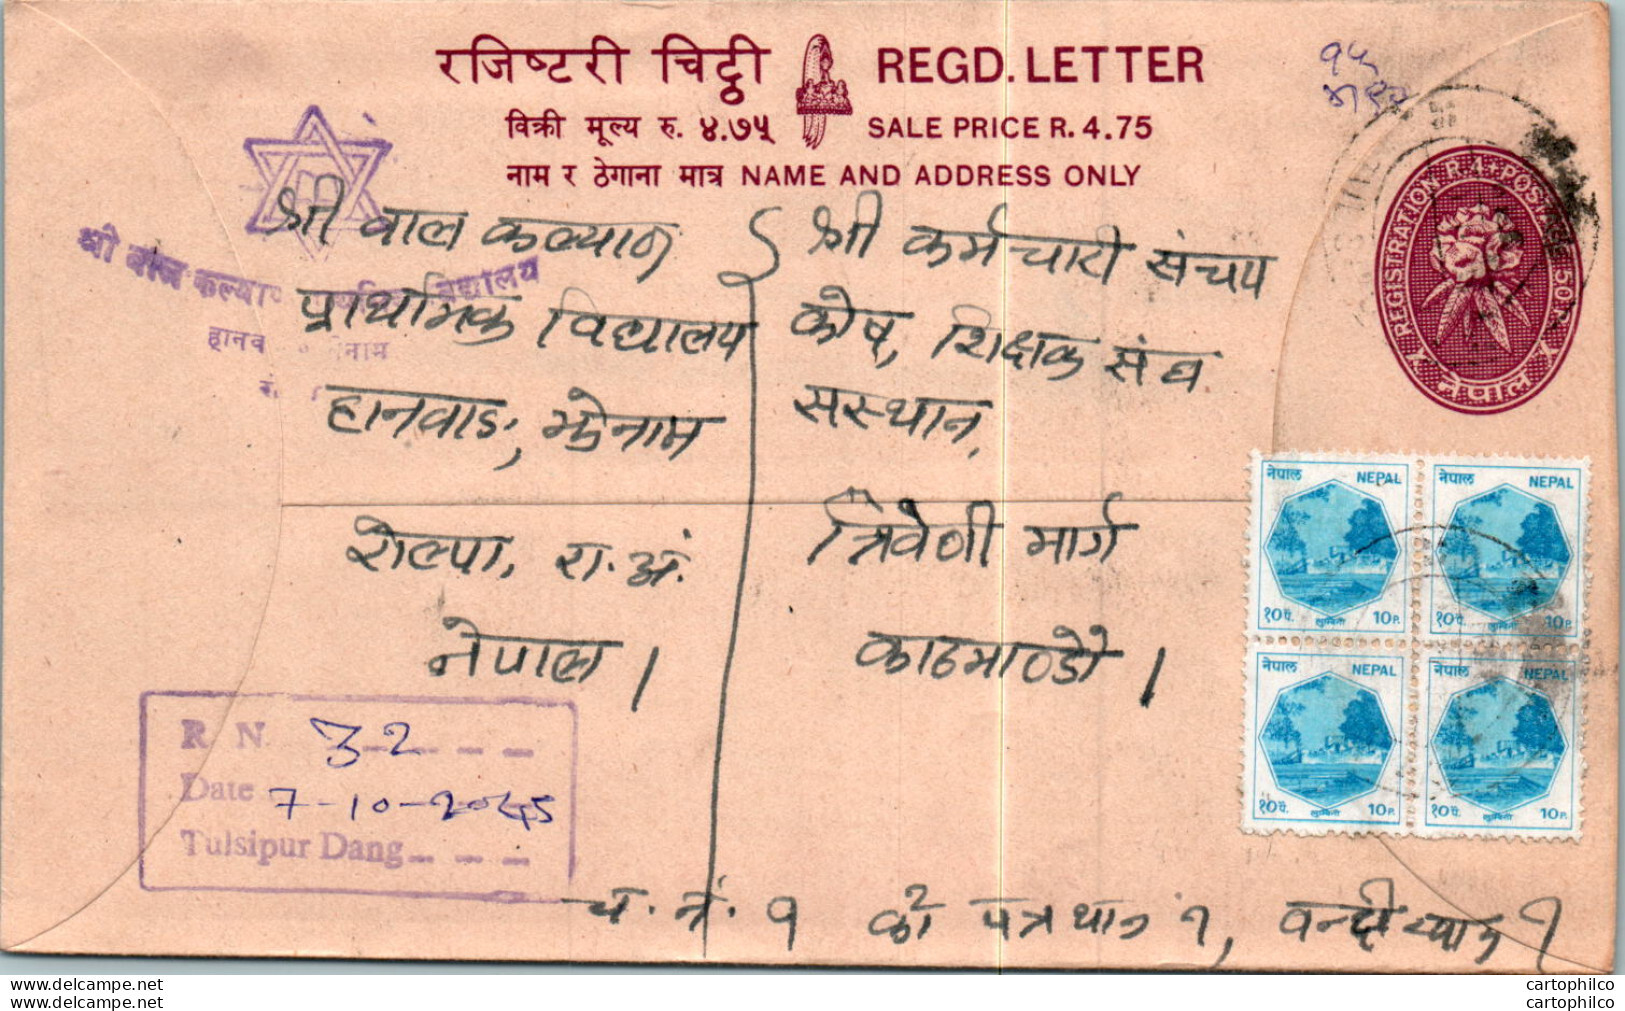 रजिष्टरी चिट्ठी REGD. LETTER
विक्री मूल्य रु. ४.७५ SALE PRICE R. 4.75
नाम र ठेगाना मात्र NAME AND ADDRESS ONLY
१५
REGISTRATION R.4. POSTAGE 50P.
नेपाल
श्री बाल कल्याण
विद्यालय
श्री वाल कल्याण
प्राथमिक विद्यालय
हानवाड, झेनाम
रोल्पा, रा. अं.
नेपाल ।
श्री कर्मचारी संचय
कोष, शिक्षक संघ
सस्थान,
त्रिवेणी मार्ग
काठमाण्डौ ।
नेपाल NEPAL
१०पै. लुम्बिनी 10P.
नेपाल NEPAL
१०पै. लुम्बिनी 10P.
नेपाल NEPAL
१०पै. लुम्बिनी 10P.
नेपाल NEPAL
१०पै. लुम्बिनी 10P.
R N. 32
Date 7-10-2045
Tulsipur Dang
च. नं. १ को पत्र थान १,
www.delcampe.net
www.delcampe.net
cartophilco
cartophilco